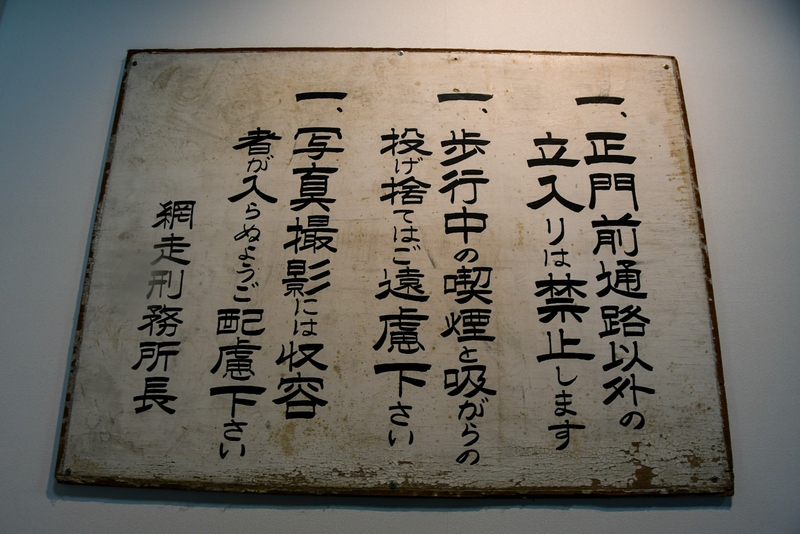 一、正門前通路以外の
立入りは禁止します
一、歩行中の喫煙と吸がらの
投げ捨てはご遠慮下さい
一、写真撮影には収容
者が入らぬようご配慮下さい
網走刑務所長